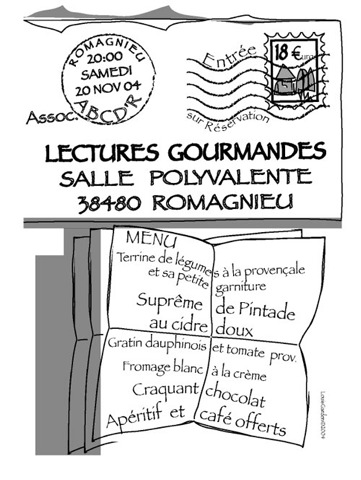 ROMAGNIEU
20:00
SAMEDI
20 NOV 04
ABCD'R
Assoc.
Entrée
18 €uros
sur Réservation
LECTURES GOURMANDES
SALLE POLYVALENTE
38480 ROMAGNIEU
MENU
Terrine de légumes à la provençale
et sa petite garniture
Suprême de Pintade
au cidre doux
Gratin dauphinois et tomate prov.
Fromage blanc à la crème
Craquant chocolat
Apéritif et café offerts